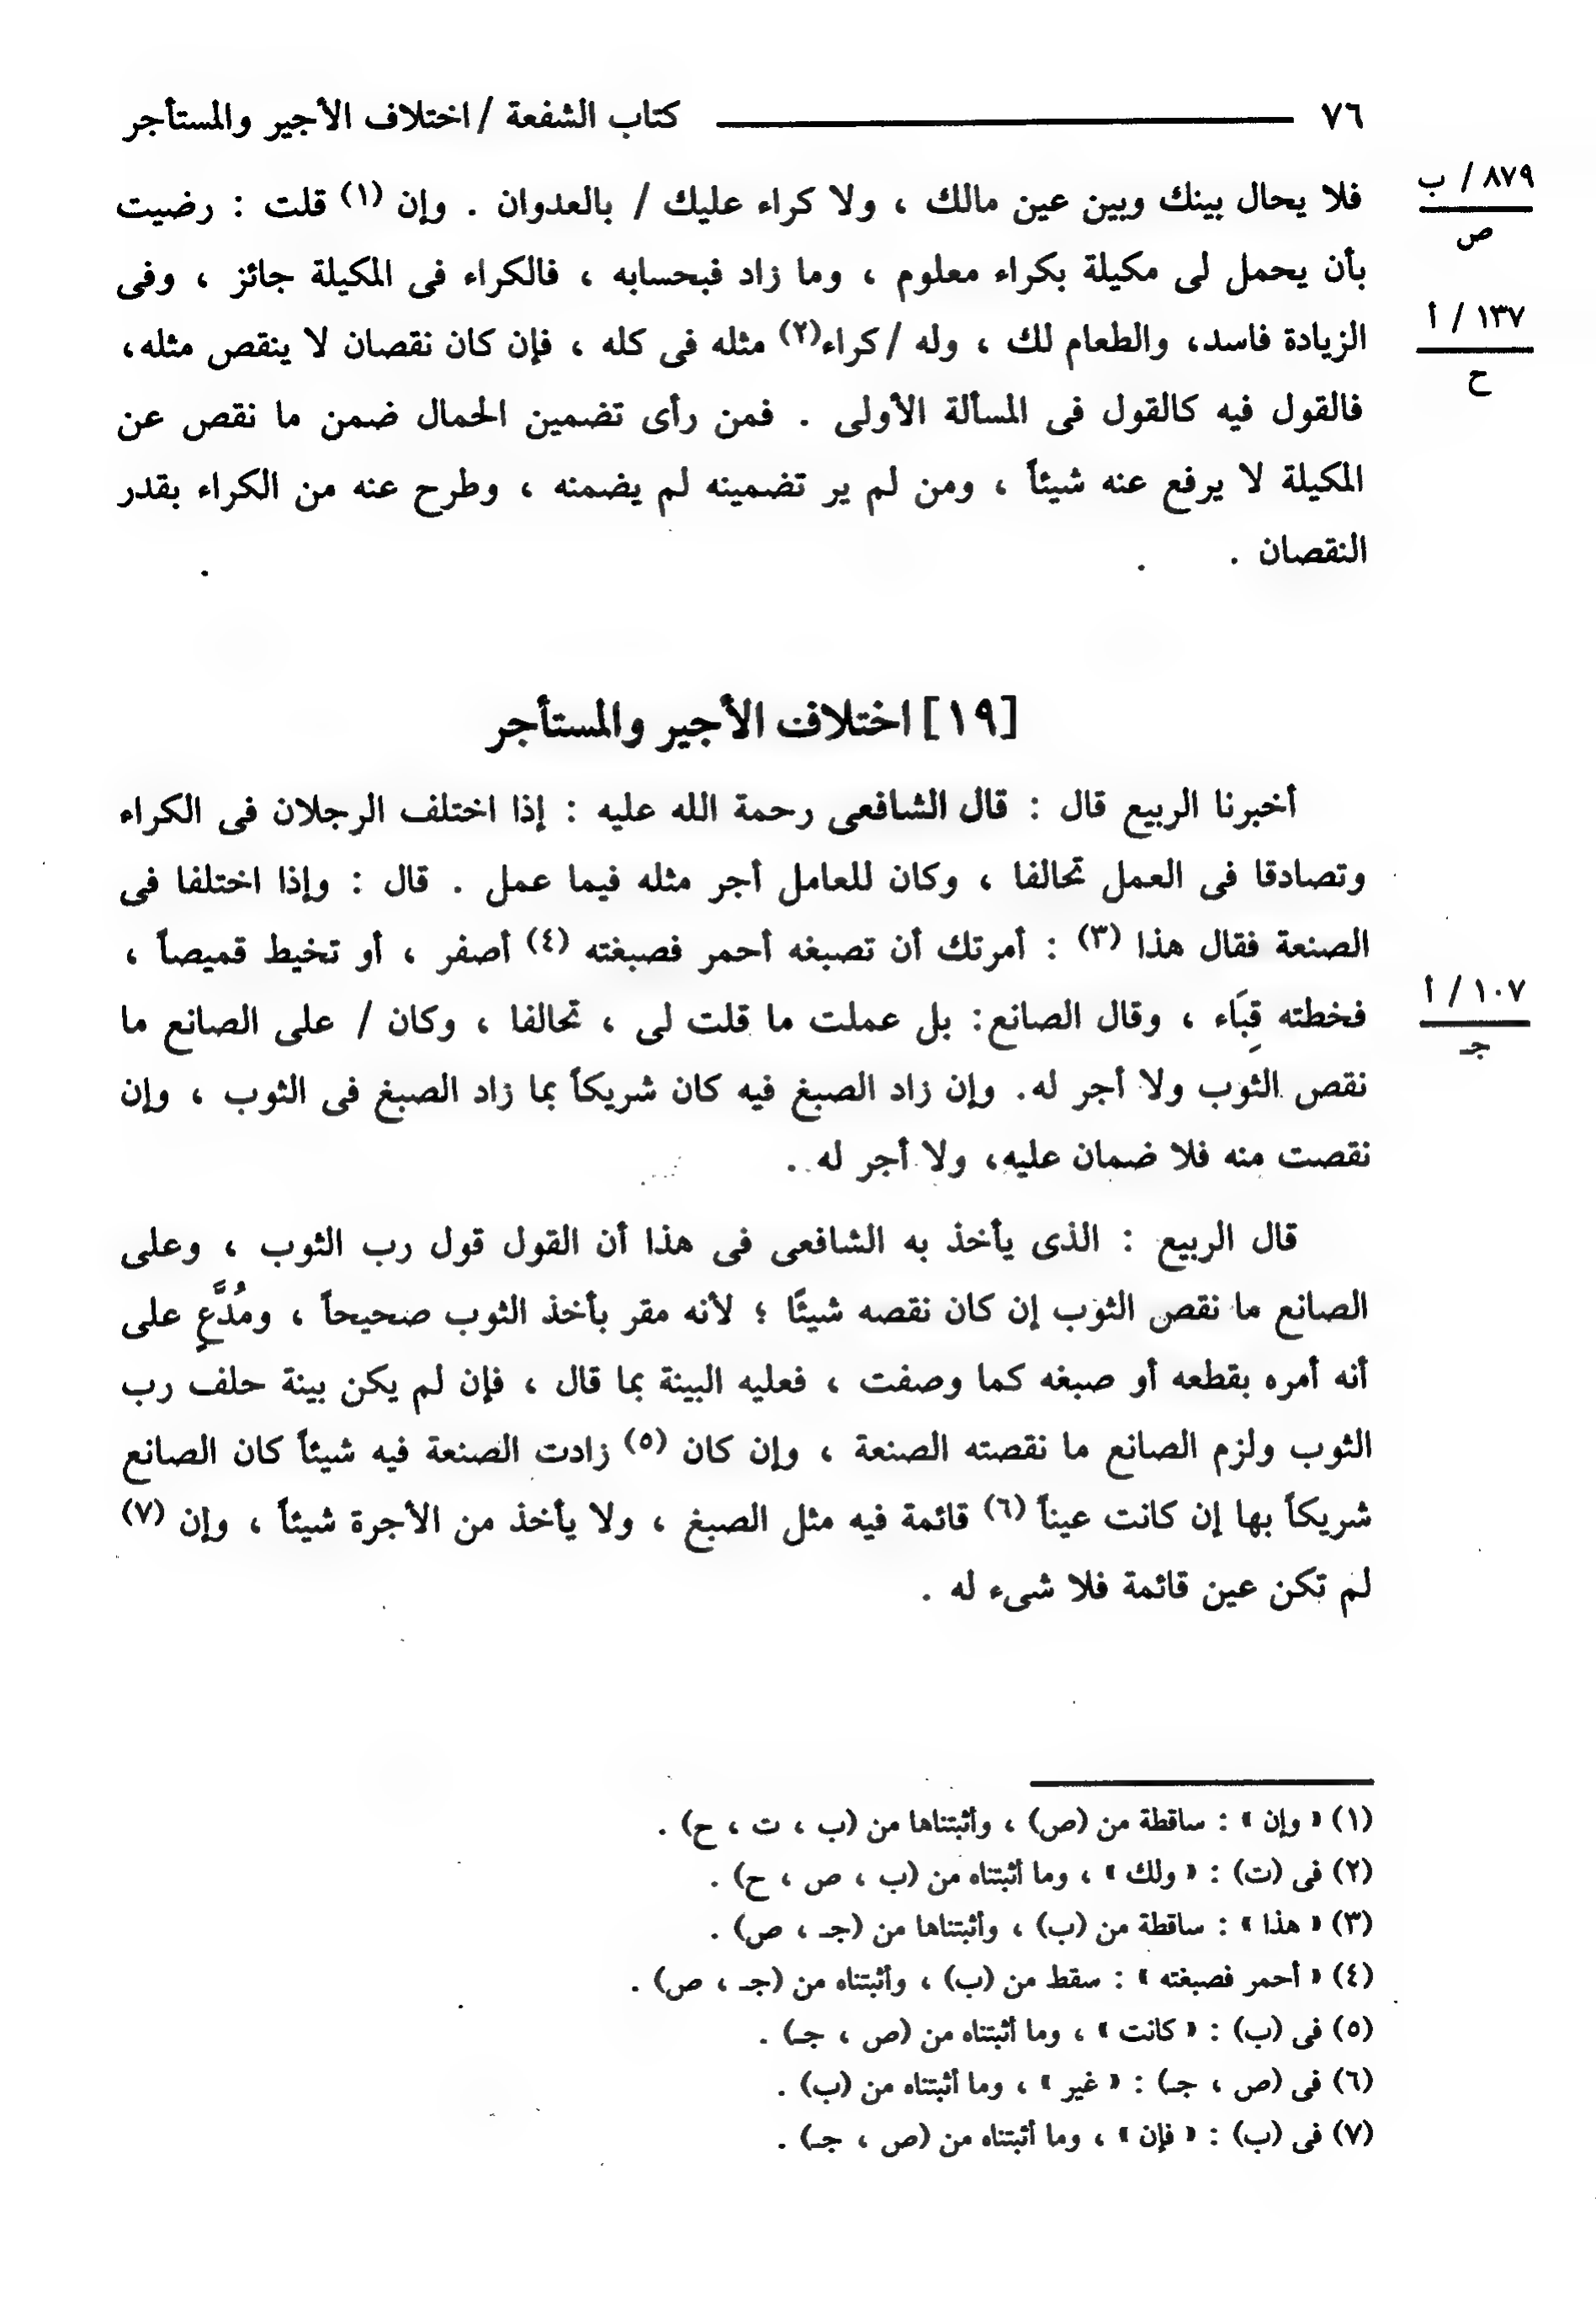 ٧٦ كتاب الشفعة / اختلاف الأجير والمستأجر
٨٧٩ / ب
ص
فلا يحال بينك وبين عين مالك ، ولا كراء عليك / بالعدوان . وإن (١) قلت : رضيت
بأن يحمل لى مكيلة بكراء معلوم ، وما زاد فبحسابه ، فالكراء فى المكيلة جائز ، وفى
١٣٧ / أ
ح
الزيادة فاسد، والطعام لك ، وله / كراء(٢) مثله فى كله ، فإن كان نقصان لا ينقص مثله،
فالقول فيه كالقول فى المسألة الأولى . فمن رأى تضمين الحمال ضمن ما نقص عن
المكيلة لا يرفع عنه شيئاً ، ومن لم ير تضمينه لم يضمنه ، وطرح عنه من الكراء بقدر
النقصان .
[١٩] اختلاف الأجير والمستأجر
أخبرنا الربيع قال : قال الشافعى رحمة الله عليه : إذا اختلف الرجلان فى الكراء
وتصادقا فى العمل تحالفا ، وكان للعامل أجر مثله فيما عمل . قال : وإذا اختلفا فى
الصنعة فقال هذا (٣) : أمرتك أن تصبغه أحمر فصبغته (٤) أصفر ، أو تخيط قميصاً ،
١٠٧ / أ
جـ
فخطته قِبَاء ، وقال الصانع: بل عملت ما قلت لى ، تحالفا ، وكان / على الصانع ما
نقص الثوب ولا أجر له. وإن زاد الصبغ فيه كان شريكاً بما زاد الصبغ فى الثوب ، وإن
نقصت منه فلا ضمان عليه، ولا أجر له .
قال الربيع : الذى يأخذ به الشافعى فى هذا أن القول قول رب الثوب ، وعلى
الصانع ما نقص الثوب إن كان نقصه شيئًا ؛ لأنه مقر بأخذ الثوب صحيحاً ، ومُدَّعٍ على
أنه أمره بقطعه أو صبغه كما وصفت ، فعليه البينة بما قال ، فإن لم يكن بينة حلف رب
الثوب ولزم الصانع ما نقصته الصنعة ، وإن كان (٥) زادت الصنعة فيه شيئاً كان الصانع
شريكاً بها إن كانت عيناً (٦) قائمة فيه مثل الصبغ ، ولا يأخذ من الأجرة شيئاً ، وإن (٧)
لم تكن عين قائمة فلا شىء له .
(١) « وإن » : ساقطة من (ص) ، وأثبتناها من (ب ، ت ، ح) .
(٢) فى (ت) : « ولك » ، وما أثبتناه من (ب ، ص ، ح) .
(٣) « هذا » : ساقطة من (ب) ، وأثبتناها من (جـ ، ص) .
(٤) « أحمر فصبغته » : سقط من (ب) ، وأثبتناه من (جـ ، ص) .
(٥) فى (ب) : « كانت » ، وما أثبتناه من (ص ، جـ) .
(٦) فى (ص ، جـ) : « غير » ، وما أثبتناه من (ب) .
(٧) فى (ب) : « فإن » ، وما أثبتناه من (ص ، جـ) .